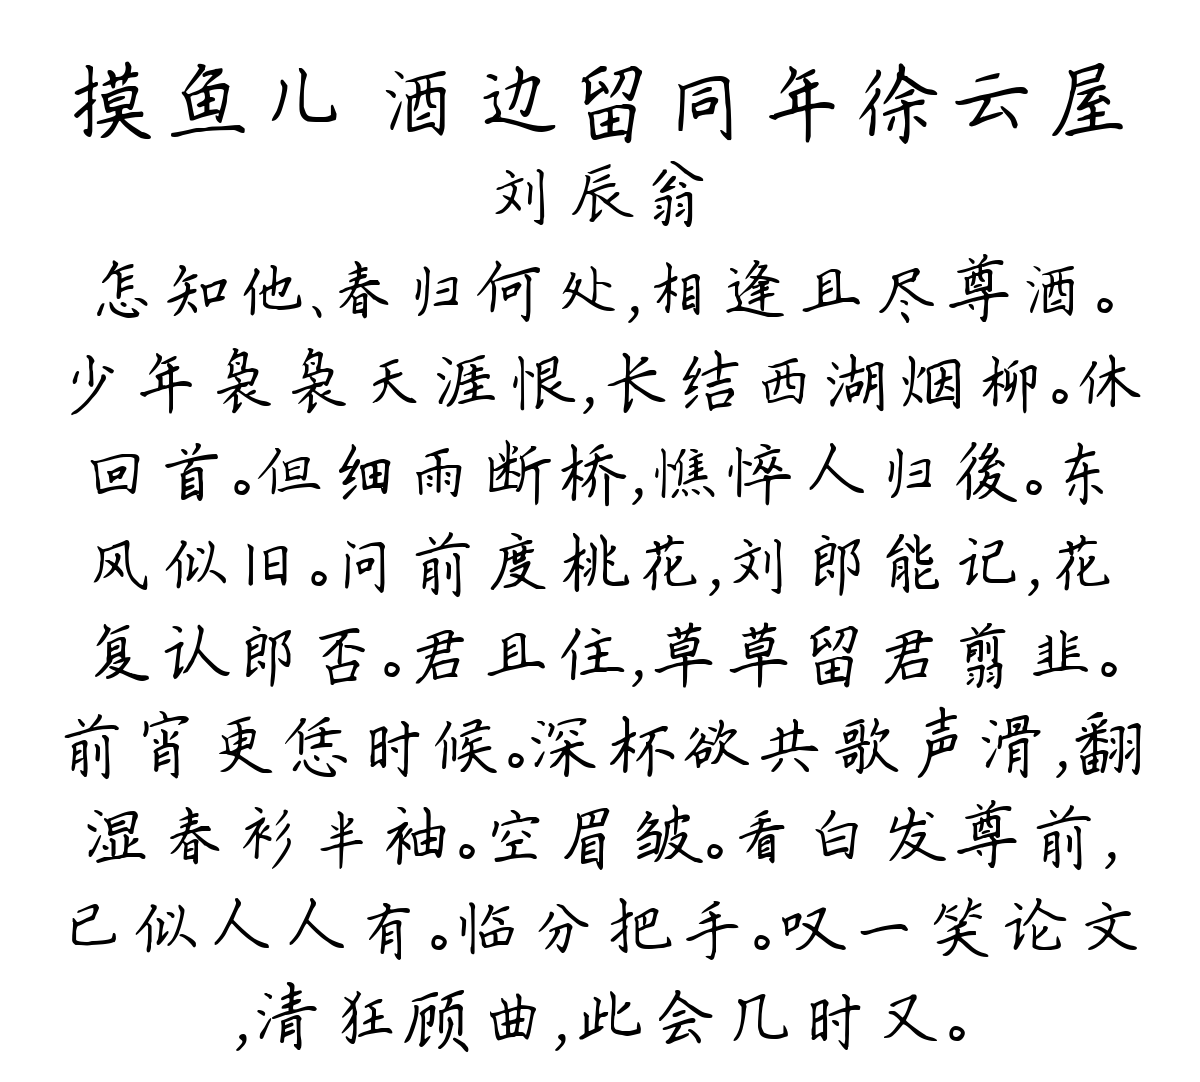 摸鱼儿 酒边留同年徐云屋
刘辰翁
怎知他、春归何处,相逢且尽尊酒。
少年袅袅天涯恨,长结西湖烟柳。休
回首。但细雨断桥,憔悴人归後。东
风似旧。问前度桃花,刘郎能记,花
复认郎否。君且住,草草留君翦韭。
前宵更恁时候。深杯欲共歌声滑,翻
湿春衫半袖。空眉皱。看白发尊前,
已似人人有。临分把手。叹一笑论文
,清狂顾曲,此会几时又。